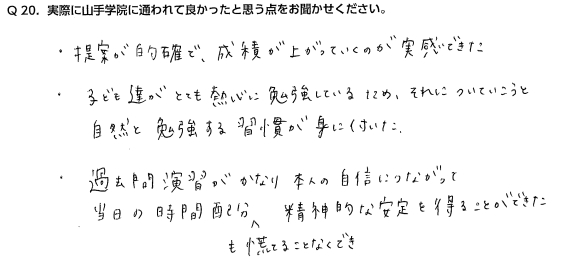 Q 20. 実際に山手学院に通われて良かったと思う点をお聞かせください。
・提案が的確で、成積が上がっていくのが実感できた
・子ども達がとても熱心に勉強しているため、それについていこうと
自然と勉強する習慣が身に付いた.
・過去問演習がかなり本人の自信につながって
当日の時間配分も慌てることなくでき精神的な安定を得ることができた